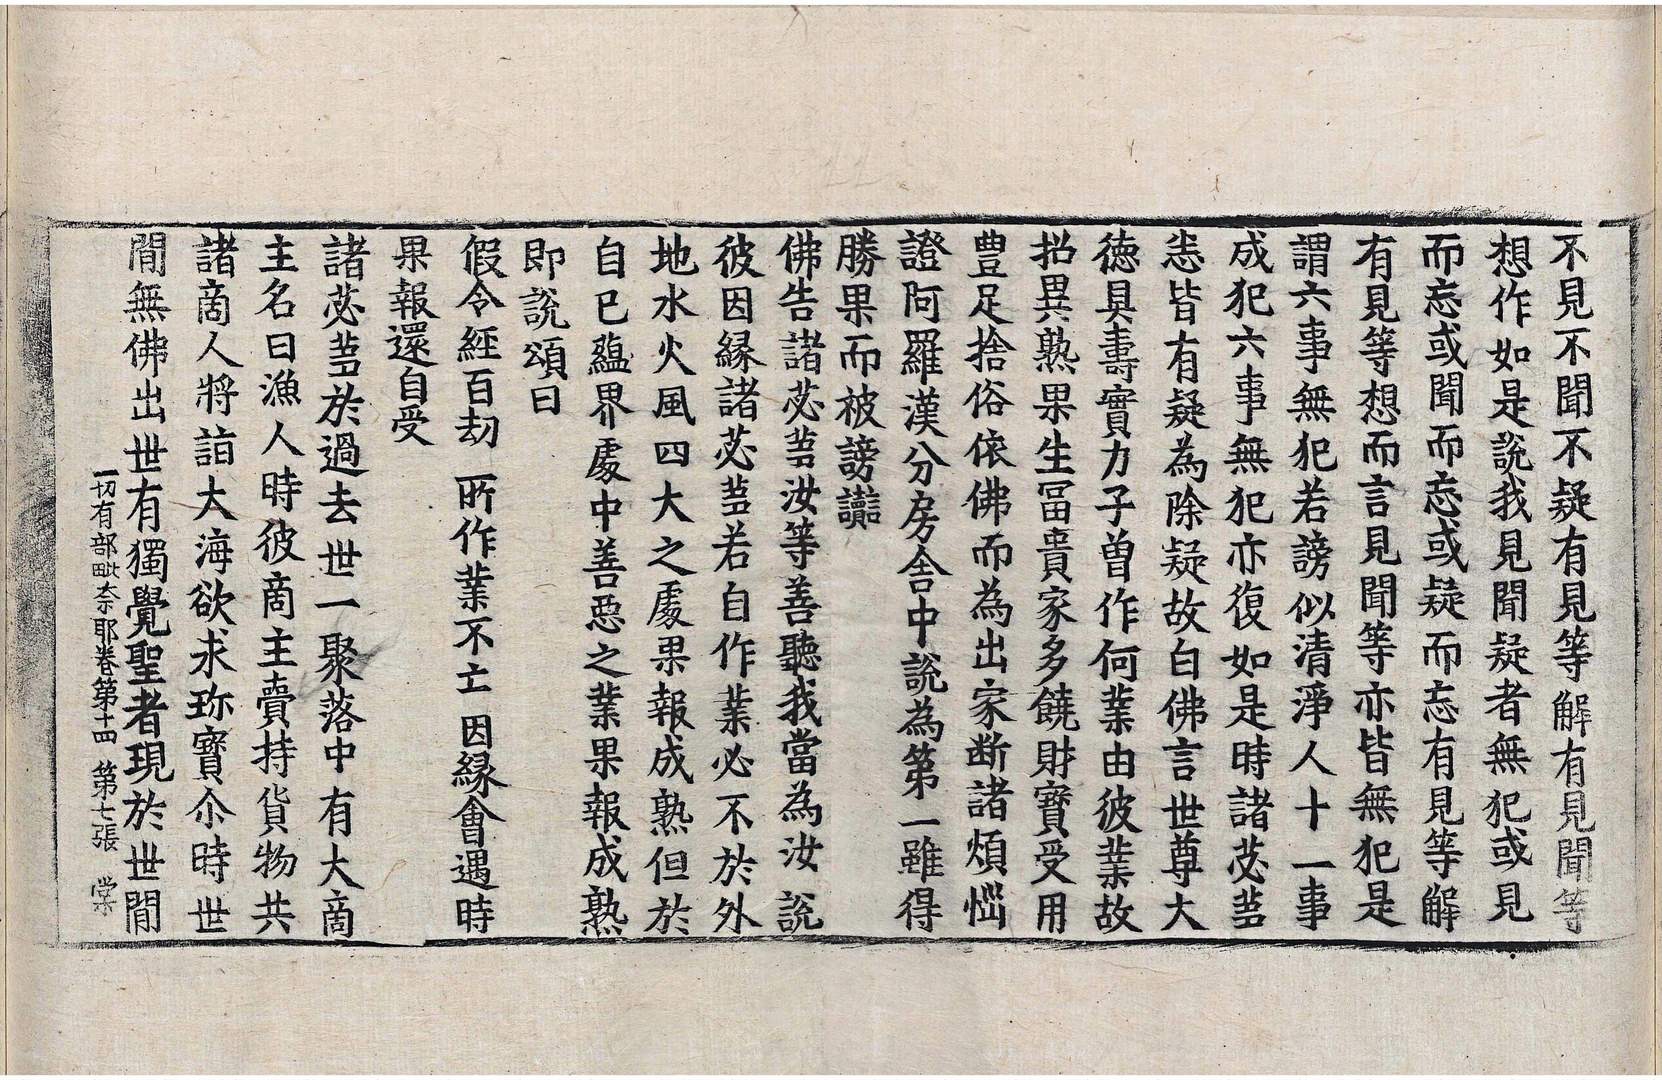 不見不聞不疑有見等解有見聞等
想作如是說我見聞疑者無犯或見
而忘或聞而忘或疑而忘有見等解
有見等想而言見聞等亦皆無犯是
謂六事無犯若謗似清淨人十一事
成犯六事無犯亦復如是時諸苾芻
恙皆有疑為除疑故白佛言世尊大
德具壽實力子曾作何業由彼業故
招異熟果生冨貴家多饒財寶受用
豊足捨俗依佛而為出家断諸煩惱
證阿羅漢分房舍中說為第一雖得
勝果而被謗讟
佛告諸苾芻汝等善聽我當為汝說
彼因縁諸苾芻若自作業必不於外
地水火風四大之處果報成熟但於
自已蘊界處中善惡之業果報成熟
即說頌曰
假令經百劫　所作業不亡　因緣會遇時
果報還自受
諸苾芻於過去世一聚落中有大商
主名曰漁人時彼商主賣持貨物共
諸商人將詣大海欲求珎寶尒時世
間無佛出世有獨覺聖者現於世間
一切有部毗奈耶卷第十四　第七張　棠